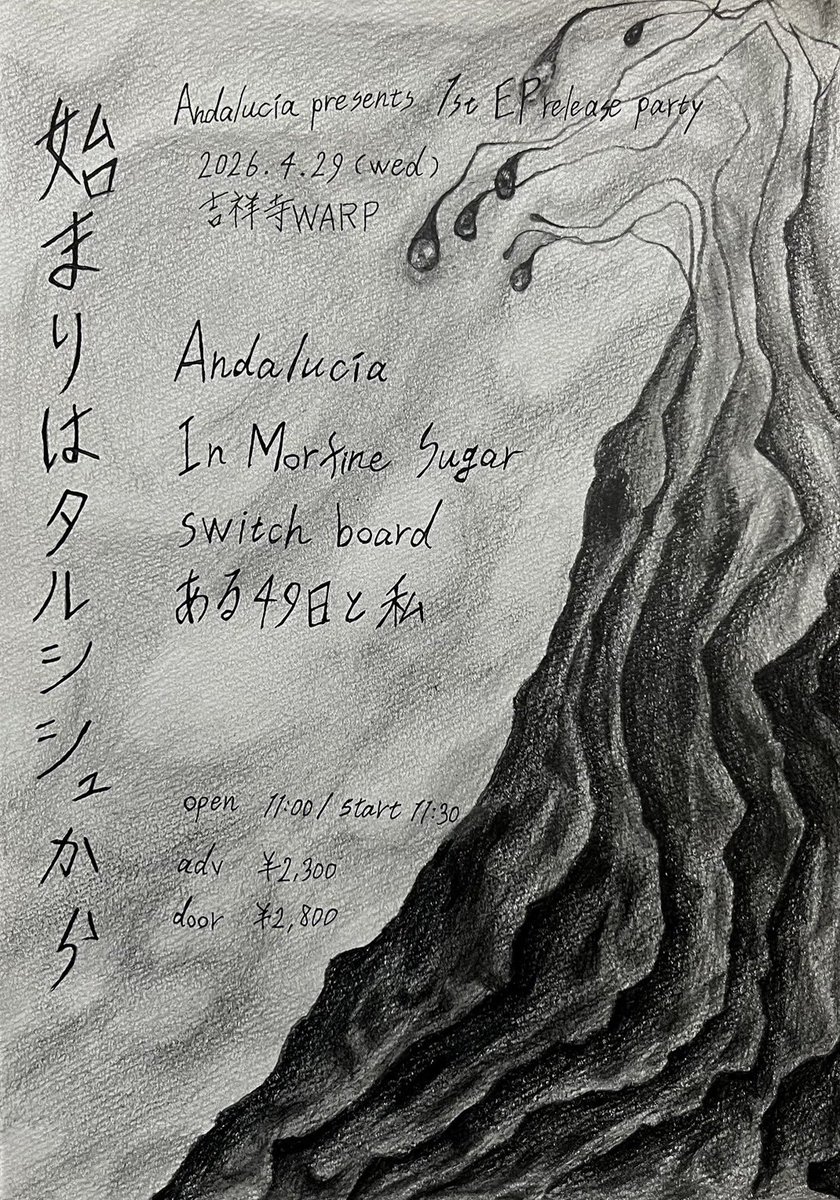 始まりはタルシシュから
Andalucía presents 1st EP release party
2026.4.29 (wed)
吉祥寺WARP
Andalucía
In Morfine Sugar
switch board
ある49日と私
open 11:00 / start 11:30
adv ¥2,300
door ¥2,800